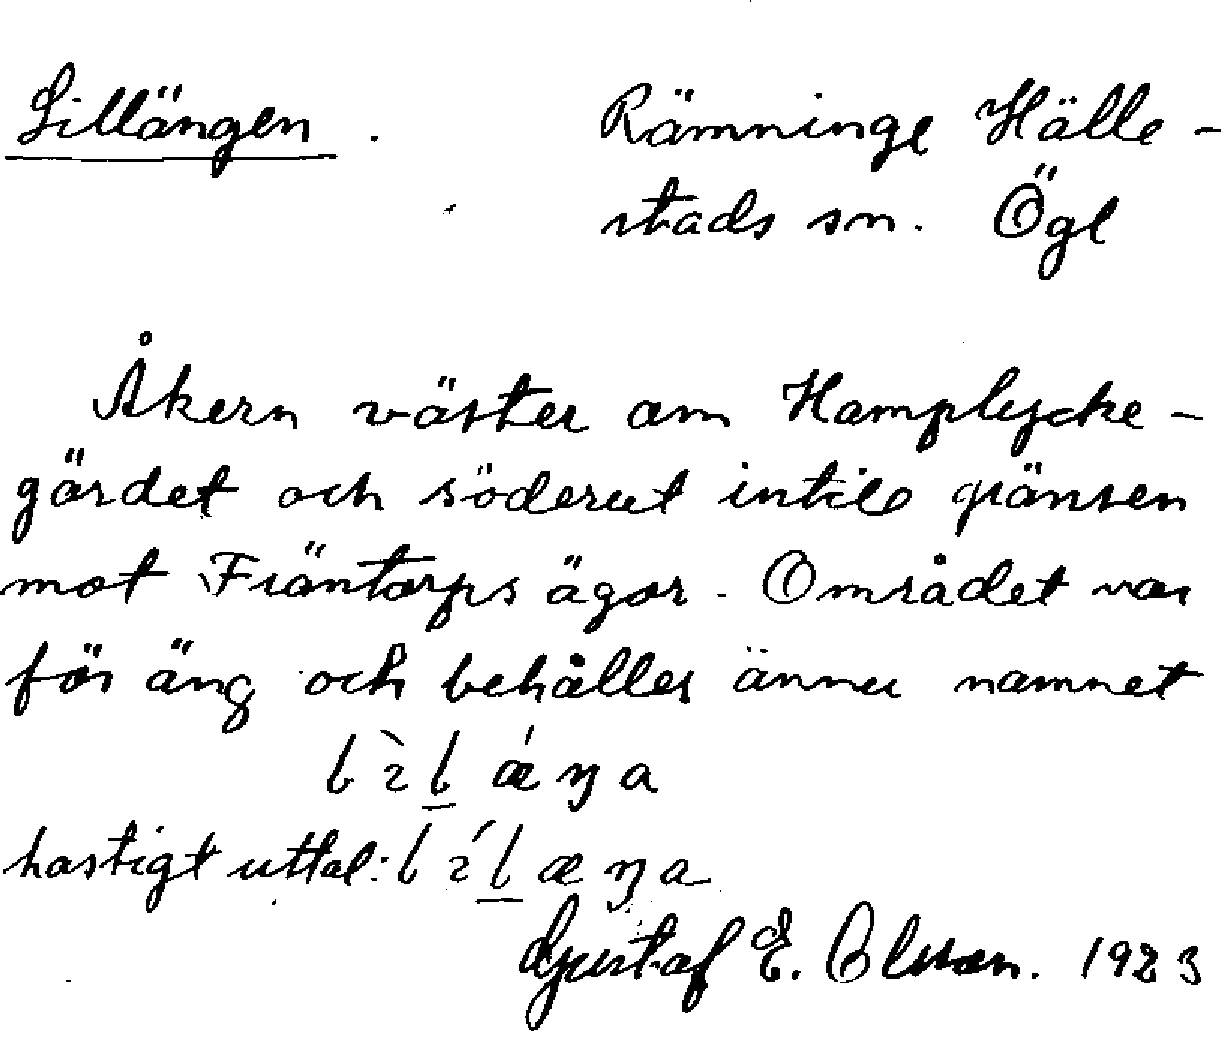 Lillängen. Rämninge Hälle-
stads sn. Ögl
Åkern väster om Hamplycke-
gärdet och söderut intill gränsen
mot Fräntorps ägor. Området var
för äng och behåller ännu namnet
hastigt uttal:
Gustaf E. Olsson. 1923